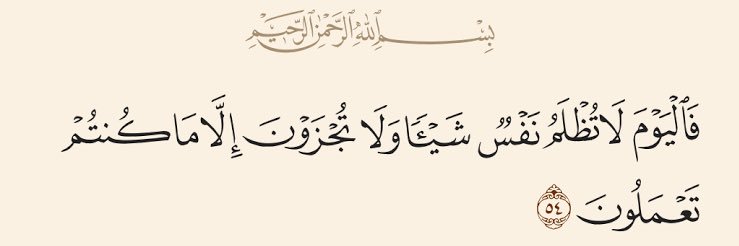 بِسْمِ ٱللَّهِ ٱلرَّحْمَٰنِ ٱلرَّحِيمِ
فَٱلْيَوْمَ لَا تُظْلَمُ نَفْسٌ شَيْـًٔا وَلَا تُجْزَوْنَ إِلَّا مَا كُنتُمْ
تَعْمَلُونَ ٥٤